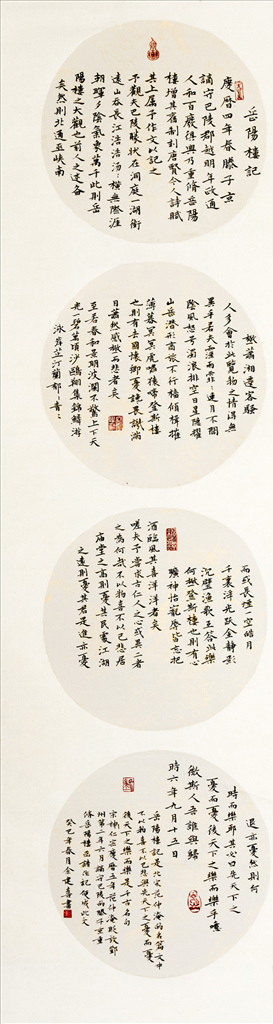 岳陽樓記
慶曆四年春滕子京
謫守巴陵郡越明年政通
人和百廢具興乃重脩岳陽
樓增其舊制刻唐賢今人詩賦
其上屬予作文以記之
予觀夫巴陵勝狀在洞庭一湖銜
遠山吞長江浩浩湯湯橫無際涯
朝暉夕陰氣象萬千此則岳
陽樓之大觀也前人之述備
矣然則北通巫峽南
極瀟湘遷客騷
人多會於此覽物之情得無
異乎若夫霪雨霏霏連月不開
陰風怒号濁浪排空日星隱耀
山岳潛形商旅不行檣傾楫摧
薄暮冥冥虎嘯猿啼登斯樓
也則有去國懷鄉憂讒畏譏滿
目蕭然感極而悲者矣
至若春和景明波瀾不驚上下天
光一碧萬頃沙鷗翔集錦鱗游
泳岸芷汀蘭郁郁青青
而或長煙一空皓月
千里浮光躍金靜影
沉璧漁歌互答此樂
何極登斯樓也則有心
曠神怡寵辱皆忘把
酒臨風其喜洋洋者矣
嗟夫予嘗求古仁人之心或異二者
之為何哉不以物喜不以己悲居
廟堂之高則憂其民處江湖
之遠則憂其君是進亦憂
退亦憂然則何
時而樂耶其必曰先天下之
憂而憂後天下之樂而樂乎噫
微斯人吾誰與歸
時六年九月十五日
岳陽樓記是北宋范仲淹的名篇文中
不以物喜不以己悲與先天下之憂而憂
後天下之樂而樂是千古名句
宋神仁宗慶曆五年范仲淹貶放鄧
州第二年六月謫守巴陵的滕子京重
脩岳陽樓函請作記便成此文
癸巳年春月金建喜書